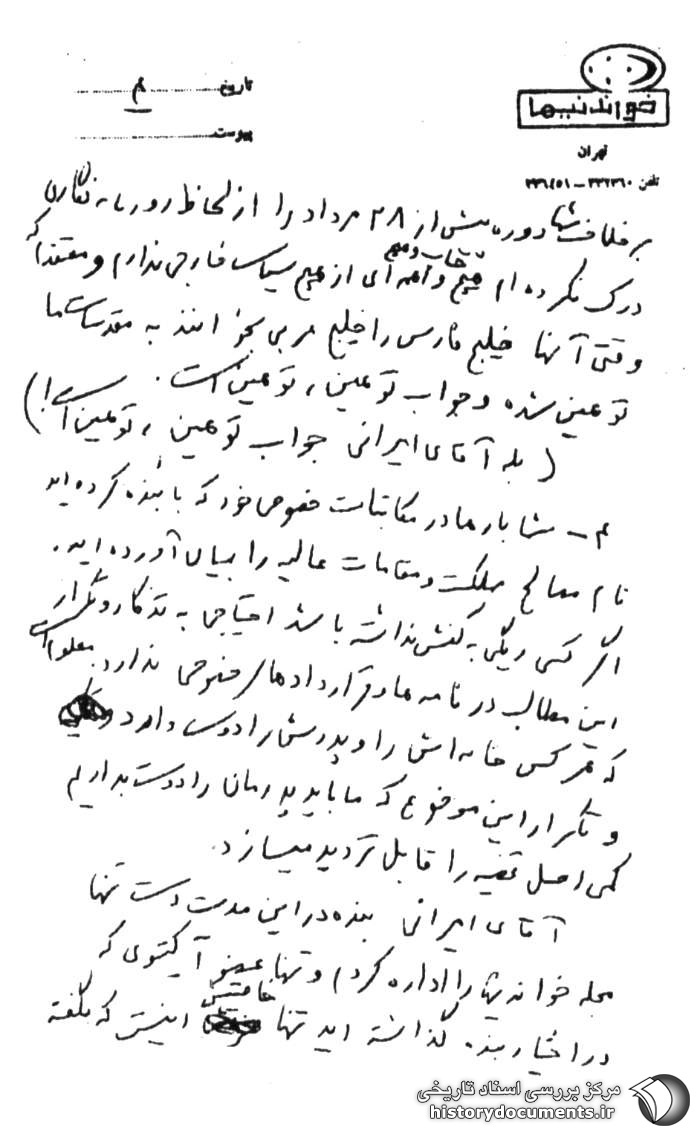 خواندنیها
تهران
تلفن ۳۳۲۳۶۰ - ۳۳۶۲۵۱
تاریخ ۴
پیوست
بر خلاف شما دوره پیش از ۲۸ مرداد را از لحاظ روزنامه نگاری
درک نکرده ام هیچ واهمه ای از هیچ سیاست خارجی ندارم و معتقدم که
وقتی آنها خلیج فارس را خلیج عربی بخوانند به مقدسات ما
توهین شده و جواب توهین ، توهین است .
( بله آقای ایرانی جواب توهین ، توهین است ! )
۴ - شما بارها در مکاتبات خصوصی خود که با بنده کرده اید
نام مصالح مملکت و مقامات عالیه را بمیان آورده اید .
اگر کسی ریگی به کفش نداشته باشد احتیاجی به تذکار و تکرار
این مطالب در نامه ها و قراردادهای خصوصی ندارد . معلوم است
که هر کس خانه اش را و پدرش را دوست دارد
و تکرار این موضوع که ما باید پدرمان را دوست بداریم
کمی اصل قضیه را قابل تردید میسازد .
آقای ایرانی بنده در این مدت دست تنها
مجله خواندنیها را اداره کردم و تنها عضو آکتیوی که
در اختیار بنده گذاشته اید تنها خاصیتش اینست که بگفته
مرکز بررسی اسناد تاریخی
historydocuments.ir